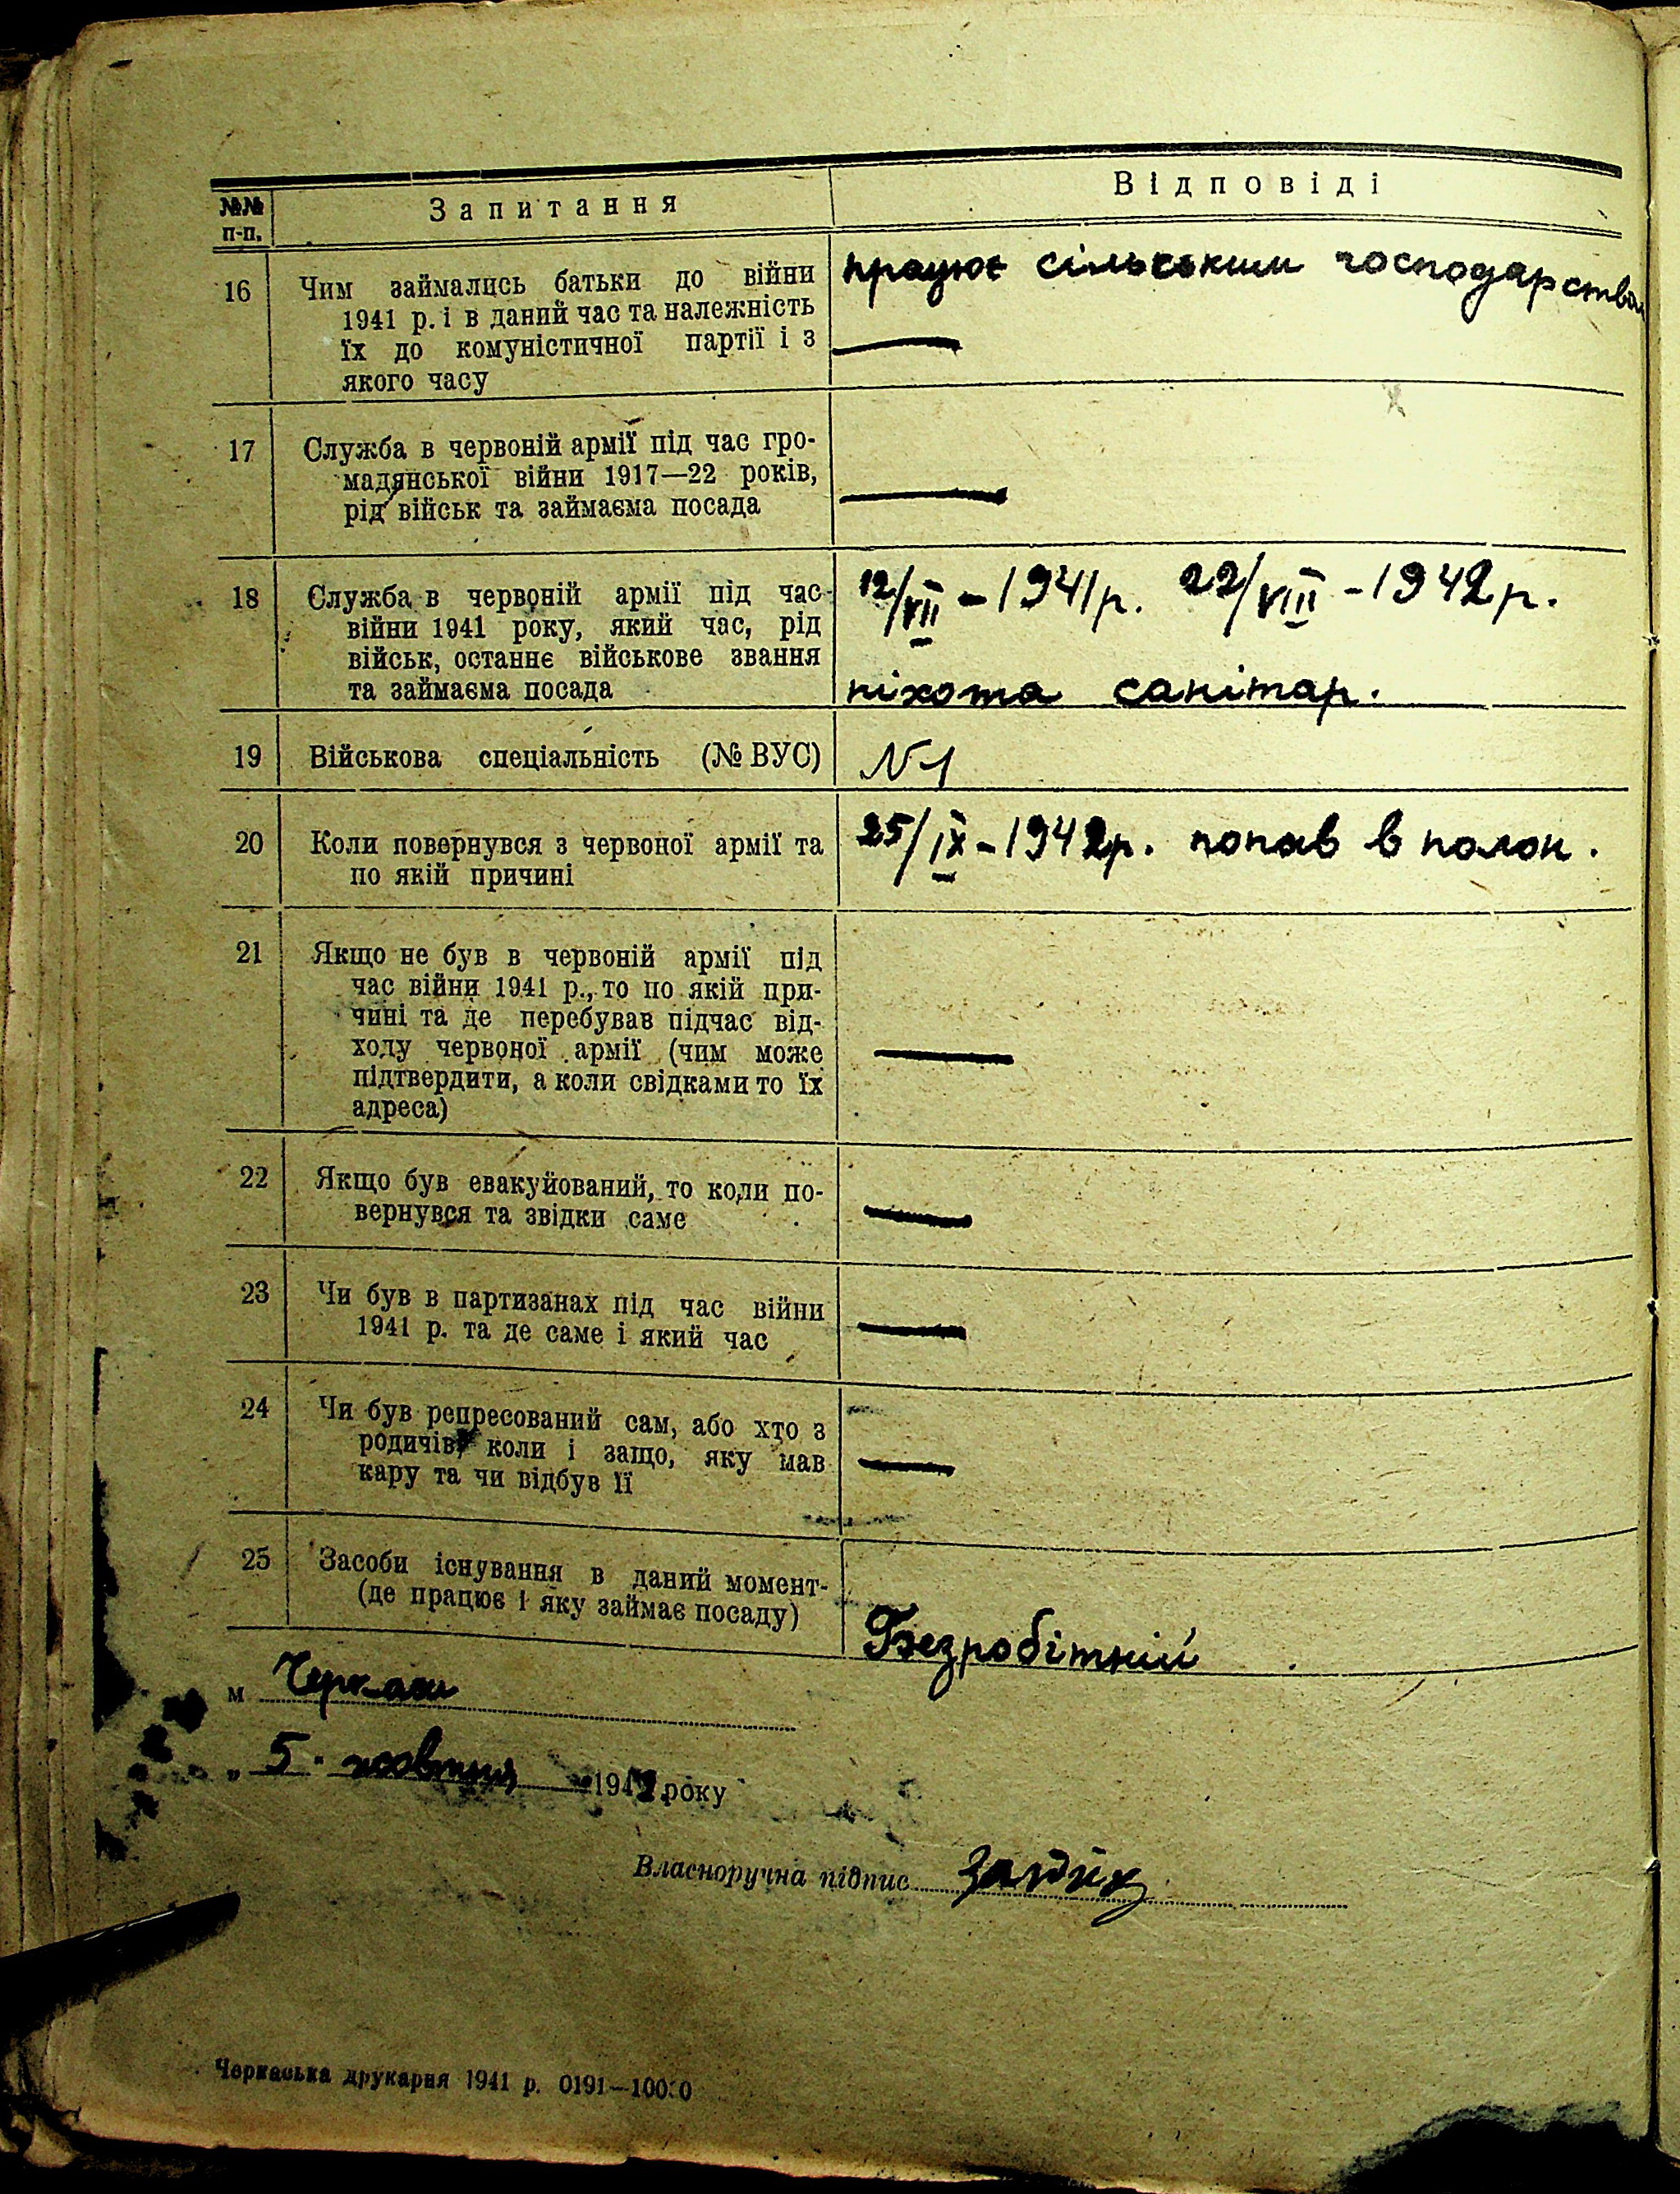 №№ п-п. Запитання Відповіді
16 Чим займались батьки до війни
1941 р. і в даний час та належність
їх до комуністичної партії і з
якого часу
працює сільським господарством
—
17 Служба в червоній армії під час гро-
мадянської війни 1917—22 років,
рід військ та займаєма посада
—
18 Служба в червоній армії під час
війни 1941 року, який час, рід
військ, останнє військове звання
та займаєма посада
12/VII - 1941 р. 22/VIII - 1942 р.
піхота санітар.
19 Військова спеціальність (№ ВУС)
N 1
20 Коли повернувся з червоної армії та
по якій причині
25/IX - 1942 р. попав в полон.
21 Якщо не був в червоній армії під
час війни 1941 р., то по якій при-
чині та де перебував підчас від-
ходу червоної армії (чим може
підтвердити, а коли свідками то їх
адреса)
—
22 Якщо був евакуйований, то коли по-
вернувся та звідки саме
—
23 Чи був в партизанах під час війни
1941 р. та де саме і який час
—
24 Чи був репресований сам, або хто з
родичів, коли і защо, яку мав
кару та чи відбув її
—
25 Засоби існування в даний момент-
(де працює і яку займає посаду)
Безробітній
м Черкаси
„ 5. жовтня 1942 року
Власноручна підпис
Черкаська друкарня 1941 р. 0191—10000